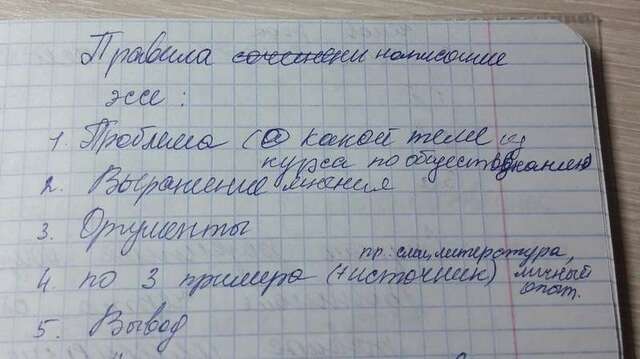 Правила написание
эссе:
1. Проблема (о какой теме из
курса по обществознанию
2. Выражение мнения
3. Аргументы
пр: спец.литература,
4. по 3 примера (+источник) личный
опыт.
5. Вывод